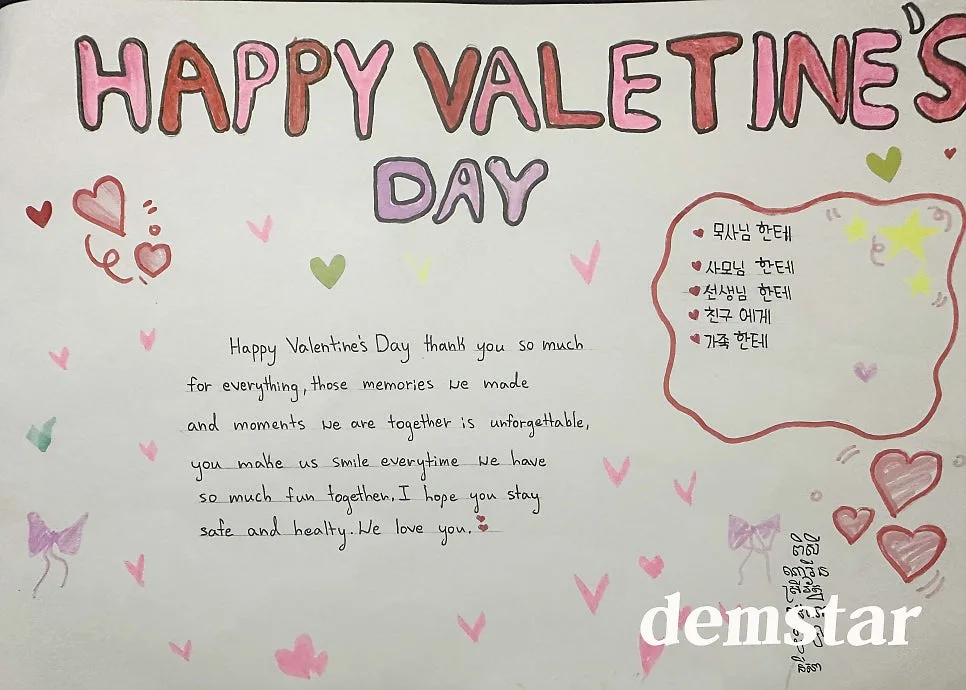 HAPPY VALETINE'S
DAY
목사님 한테
사모님 한테
선생님 한테
친구 에게
가족 한테
Happy Valentine's Day thank you so much
for everything, those memories we made
and moments we are together is unforgettable,
you make us smile everytime we have
so much fun together. I hope you stay
safe and healty. We love you.
demstar